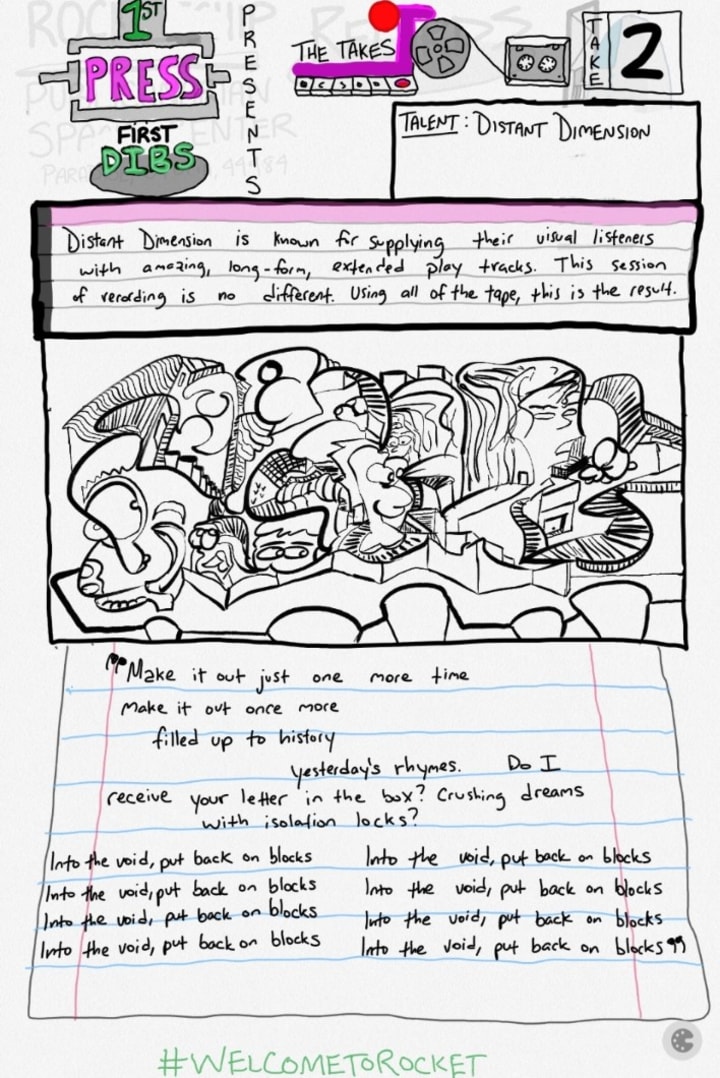 ROCKETSHIP RECORDS
1ST
PRESS
FIRST
DIBS
PRESENTS
THE TAKES
TAKE
2
TALENT: DISTANT DIMENSION
Distant Dimension is known for supplying their visual listeners
with amazing, long-form, extended play tracks. This session
of rerording is no different. Using all of the tape, this is the result.
"Make it out just one more time
Make it out once more
filled up to history
yesterday's rhymes. Do I
receive your letter in the box? Crushing dreams
with isolation locks?
Into the void, put back on blocks Into the void, put back on blocks
Into the void, put back on blocks Into the void, put back on blocks
Into the void, put back on blocks Into the void, put back on blocks
Into the void, put back on blocks Into the void, put back on blocks"
#WELCOMETOROCKET